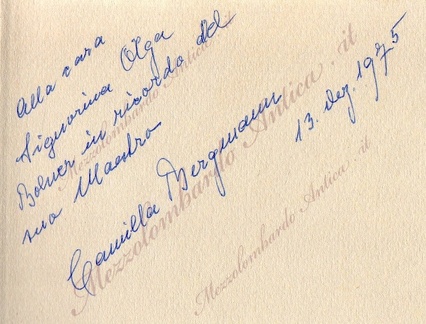 Alla cara
Signorina Olga
Bolner in ricordo del
suo Maestro
Camilla Bergmann
13. Dez. 1975
Mezzolombardo Antica . it
Mezzolombardo Antica . it
Mezzolombardo Antica . it